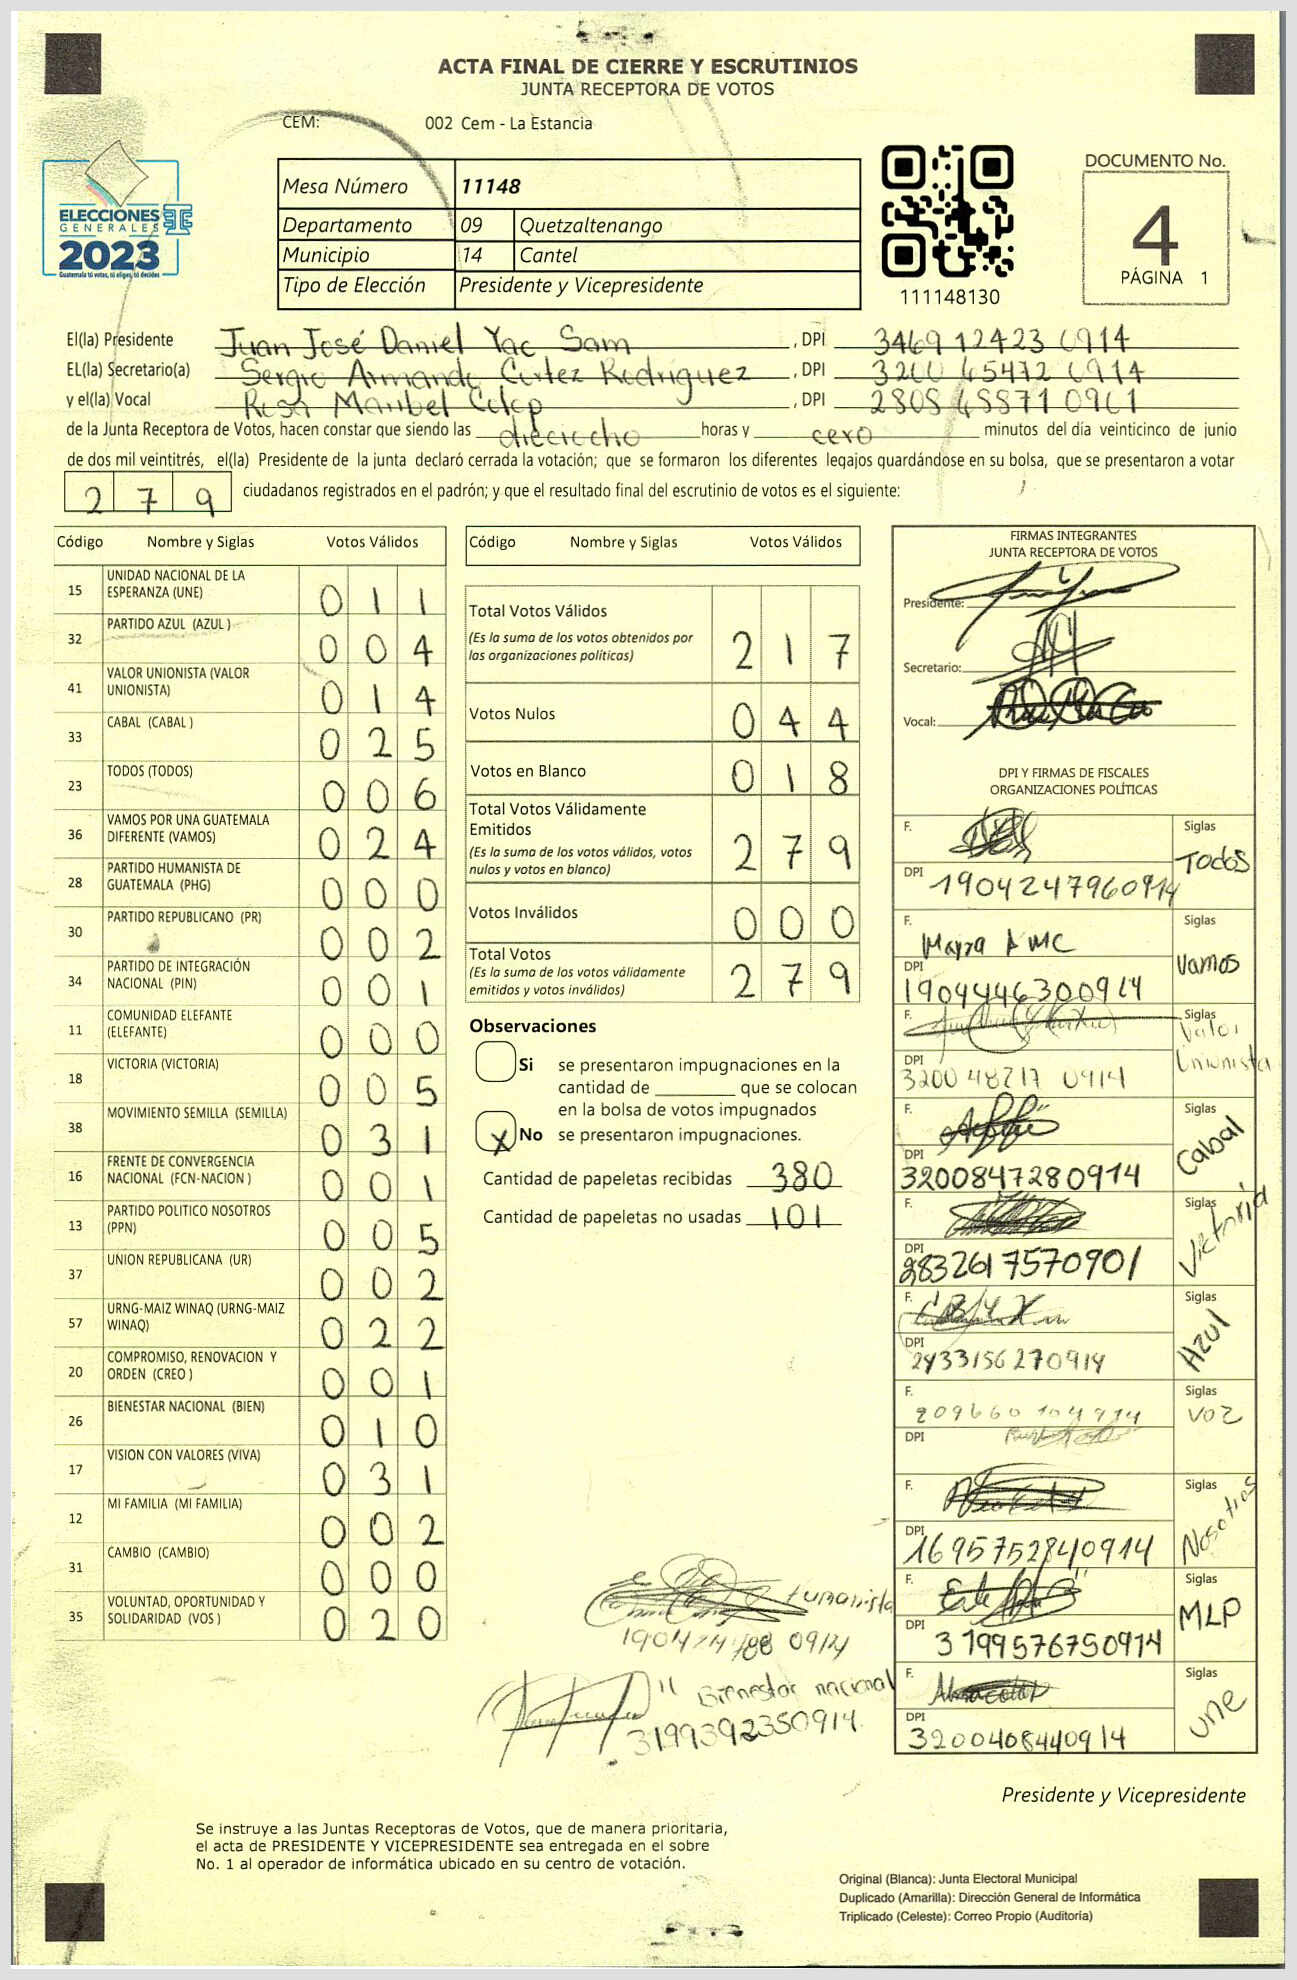 ACTA FINAL DE CIERRE Y ESCRUTINIOS
JUNTA RECEPTORA DE VOTOS
CEM: 002 Cem - La Estancia
ELECCIONES
GENERALES
2023
Guatemala tú votas, tú eliges, tú decides
Mesa Número 11148
Departamento 09 Quetzaltenango
Municipio 14 Cantel
Tipo de Elección Presidente y Vicepresidente
111148130
DOCUMENTO No.
4
PÁGINA 1
El(la) Presidente Juan José Daniel Yac Sam, DPI 3469 12423 0914
EL(la) Secretario(a) Sergio Armando Cortez Rodriguez, DPI 3200 45472 0914
y el(la) Vocal Rosa Maribel Colop, DPI 2808 48871 0901
de la Junta Receptora de Votos, hacen constar que siendo las dieciocho horas y cero minutos del día veinticinco de junio
de dos mil veintitrés, el(la) Presidente de la junta declaró cerrada la votación; que se formaron los diferentes legajos quardándose en su bolsa, que se presentaron a votar
2 7 9 ciudadanos registrados en el padrón; y que el resultado final del escrutinio de votos es el siguiente:
Código Nombre y Siglas Votos Válidos
15 UNIDAD NACIONAL DE LA ESPERANZA (UNE) 0 1 1
32 PARTIDO AZUL (AZUL ) 0 0 4
41 VALOR UNIONISTA (VALOR UNIONISTA) 0 1 4
33 CABAL (CABAL ) 0 2 5
23 TODOS (TODOS) 0 0 6
36 VAMOS POR UNA GUATEMALA DIFERENTE (VAMOS) 0 2 4
28 PARTIDO HUMANISTA DE GUATEMALA (PHG) 0 0 0
30 PARTIDO REPUBLICANO (PR) 0 0 2
34 PARTIDO DE INTEGRACIÓN NACIONAL (PIN) 0 0 1
11 COMUNIDAD ELEFANTE (ELEFANTE) 0 0 0
18 VICTORIA (VICTORIA) 0 0 5
38 MOVIMIENTO SEMILLA (SEMILLA) 0 3 1
16 FRENTE DE CONVERGENCIA NACIONAL (FCN-NACION ) 0 0 1
13 PARTIDO POLITICO NOSOTROS (PPN) 0 0 5
37 UNION REPUBLICANA (UR) 0 0 2
57 URNG-MAIZ WINAQ (URNG-MAIZ WINAQ) 0 2 2
20 COMPROMISO, RENOVACION Y ORDEN (CREO ) 0 0 1
26 BIENESTAR NACIONAL (BIEN) 0 1 0
17 VISION CON VALORES (VIVA) 0 3 1
12 MI FAMILIA (MI FAMILIA) 0 0 2
31 CAMBIO (CAMBIO) 0 0 0
35 VOLUNTAD, OPORTUNIDAD Y SOLIDARIDAD (VOS ) 0 2 0
Código Nombre y Siglas Votos Válidos
Total Votos Válidos 2 1 7
(Es la suma de los votos obtenidos por
las organizaciones políticas)
Votos Nulos 0 4 4
Votos en Blanco 0 1 8
Total Votos Válidamente
Emitidos 2 7 9
(Es la suma de los votos válidos, votos
nulos y votos en blanco)
Votos Inválidos 0 0 0
Total Votos 2 7 9
(Es la suma de los votos válidamente
emitidos y votos inválidos)
Observaciones
Si se presentaron impugnaciones en la
cantidad de ________ que se colocan
en la bolsa de votos impugnados
X No se presentaron impugnaciones.
Cantidad de papeletas recibidas 380
Cantidad de papeletas no usadas 101
Humanista
0914
Bienestar nacional
3199392350914
FIRMAS INTEGRANTES
JUNTA RECEPTORA DE VOTOS
Presidente:
Secretario:
Vocal:
DPI Y FIRMAS DE FISCALES
ORGANIZACIONES POLÍTICAS
F. Siglas Todos
DPI 1904247960914
F. Mayra A MC Siglas Vamos
DPI 1904446300914
F. Siglas Valor Unionista
DPI 3200 48217 0914
F. Siglas Cabal
DPI 3200847280914
F. Siglas Victoria
DPI 2832617570901
F. Siglas Azul
DPI 2433156270914
F. Siglas VOZ
DPI
F. Siglas Nosotros
DPI 1695752840914
F. Siglas MLP
DPI 3199576750914
F. Siglas une
DPI 3200408440914
Presidente y Vicepresidente
Se instruye a las Juntas Receptoras de Votos, que de manera prioritaria,
el acta de PRESIDENTE Y VICEPRESIDENTE sea entregada en el sobre
No. 1 al operador de informática ubicado en su centro de votación.
Original (Blanca): Junta Electoral Municipal
Duplicado (Amarilla): Dirección General de Informática
Triplicado (Celeste): Correo Propio (Auditoría)